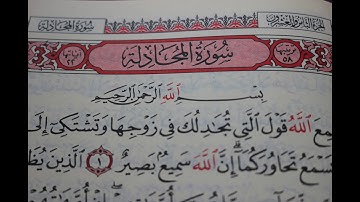 الجزء الثامن والعشرون سورة المجادلة
ترتيبها ٥٨ سُورَةُ المُجَادلَة آياتها ٢٢
بِسْمِ ٱللَّهِ ٱلرَّحْمَٰنِ ٱلرَّحِيمِ
مِعَ ٱللَّهُ قَوْلَ ٱلَّتِي تُجَٰدِلُكَ فِي زَوْجِهَا وَتَشْتَكِيٓ إِلَى
يَسْمَعُ تَحَاوُرَكُمَآ إِنَّ ٱللَّهَ سَمِيعٌۢ بَصِيرٌ ١ ٱلَّذِينَ